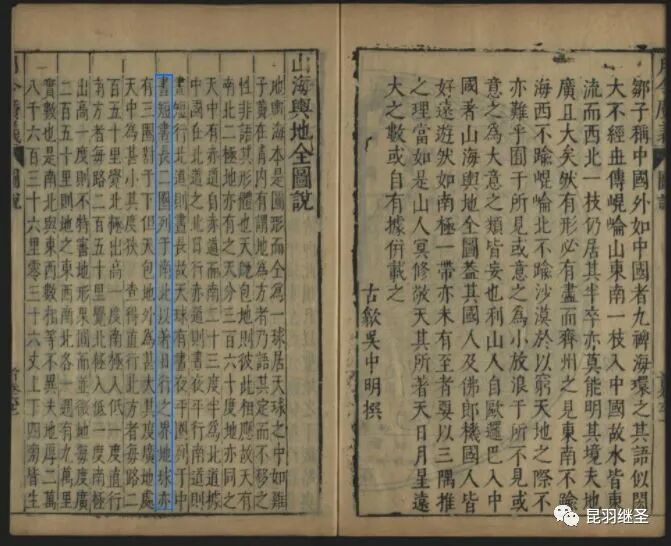 鄒子稱中國外如中國者九裨海環之其語似閎
大不經世傳崐崘山東南一枝入中國故水皆東
流而西北一枝仍居其半卒亦莫能明其境夫地
廣且大矣然有形必有盡而齊州之見東南不踰
海西不踰崐崘北不踰沙漠於以窮天地之際不
亦難乎囿于所見或意之為小放浪于所不見或
意之為大意之類皆妄也利山人自歐邏巴入中
國著山海輿地全圖蓋其國人及佛郎機國人皆
好遠遊然如南極一帶亦未有至者要以三隅推
之理當如是山人冥修敬天其所著天日月星遠
大之數或自有據併載之
古歙吳中明撰
山海輿地全圖說
地與海本是圓形而合為一球居天球之中如雞
子黃在青內有謂地為方者乃語其定而不移之
性非語其形體也天既包地則彼此相應故天有
南北二極地亦有之天分三百六十度地亦同之
天中有赤道自赤道而南二十三度半為北道據
中國在北道之北日行赤道則晝夜平行南道則
晝短行北道則晝長故天球有晝夜平圈列于中
晝短晝長二圈列于南北以著日行之界地球亦
有三圈對于下但天包地外為甚大其度廣地處
天中為甚小其度狹 查得直行北方者每路二
百五十里覺北極出高一度南極入低一度直行
南方者每路二百五十里覺北極入低一度南極
出高一度則不特審地形果圓而並徵地每度廣
二百五十里則地之東西南北各一週有九萬里
實數也是南北與東西數相等不異夫地厚二萬
八千六百三十六里零三十六丈上下四旁皆生
圖說
昆羽继圣